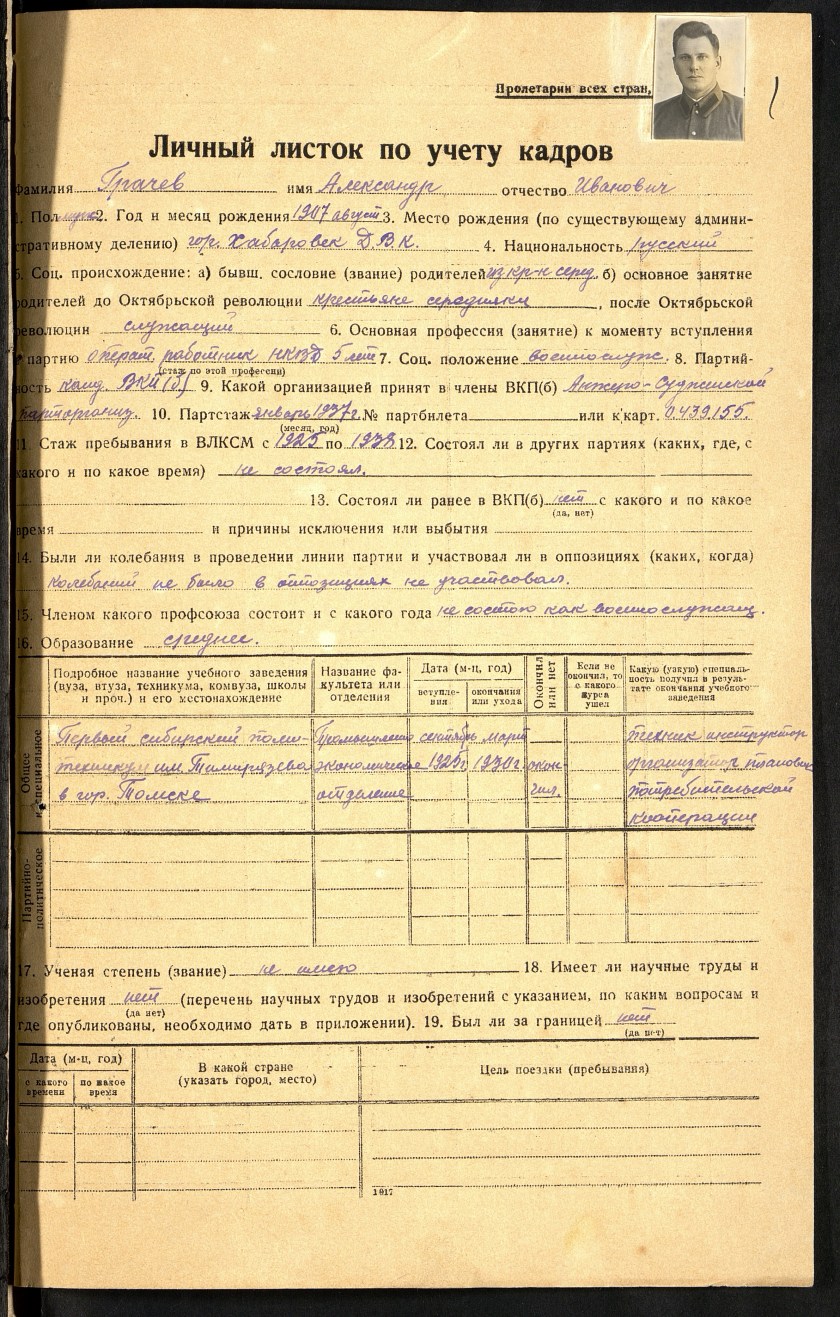 Пролетарии всех стран,
Личный листок по учету кадров
Фамилия Грачев имя Александр отчество Иванович
1. Пол муж. 2. Год и месяц рождения 1907 август 3. Место рождения (по существующему админи-
стративному делению) гор. Хабаровск Д.В.К. 4. Национальность русский
5. Соц. происхождение: а) бывш. сословие (звание) родителей из кр-н серед. б) основное занятие
родителей до Октябрьской революции крестьяне середняки, после Октябрьской
революции служащий 6. Основная профессия (занятие) к моменту вступления
в партию операт. работник НКВД 5 лет 7. Соц. положение военнослуж. 8. Партий-
(стаж по этой професени)
ность канд. ВКП(б) 9. Какой организацией принят в члены ВКП(б) Анжеро-Судженской
парторганиз. 10. Партстаж январь 1937г. № партбилета или к карт. 0439155.
(месяц, год)
11. Стаж пребывания в ВЛКСМ с 1925 по 1938 12. Состоял ли в других партиях (каких, где, с
какого и по какое время) не состоял.
13. Состоял ли ранее в ВКП(б) нет с какого и по какое
(да, нет)
время и причины исключения или выбытия
14. Были ли колебания в проведении линии партии и участвовал ли в оппозициях (каких, когда)
Колебаний не было в оппозициях не участвовал.
15. Членом какого профсоюза состоит и с какого года не состою как военнослужащ.
16. Образование среднее.
Подробное название учебного заведения (вуза, втуза, техникума, комвуза, школы и проч.) и его местонахождение
Название факультета или отделения
Дата (м-ц, год)
вступле-
ния
окончания
или ухода
Окончил
или нет
Если не
окончил, то
с какого
курса
ушел
Какую (узкую) специаль-
ность получил в резуль-
тате окончания учебного
заведения
Общее
и специальное
Первый сибирский поли-
техникум им. Тимирязева
в гор. Томске
Промышленно
экономическое
отделение
сентябрь
1925г.
март
1930г.
окон-
чил.
техник инструктор
организатор плановик
потребительской
кооперации
Партийно-
политическое
17. Ученая степень (звание) не имею 18. Имеет ли научные труды и
изобретения нет (перечень научных трудов и изобретений с указанием, по каким вопросам и
(да нет)
где опубликованы, необходимо дать в приложении). 19. Был ли за границей нет
(да нет)
Дата (м-ц, год)
с какого
времени
по какое
время
В какой стране
(указать город, место)
Цель поездки (пребывания)
1917